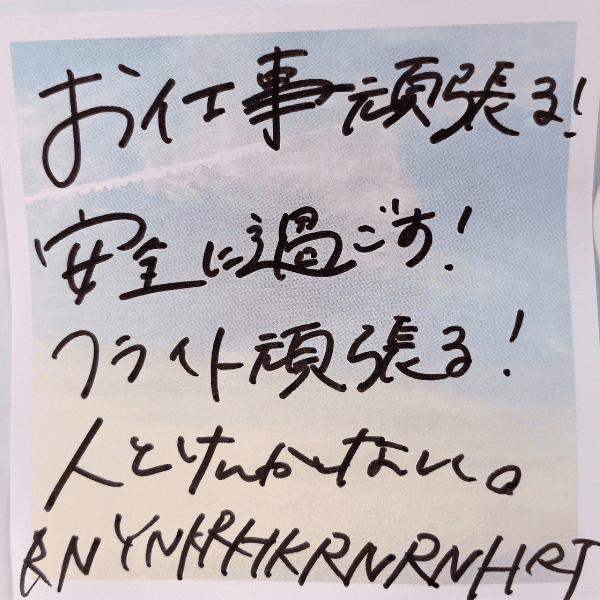 お仕事頑張る!
安全に過ごす!
フライト頑張る!
人とけんかしない。